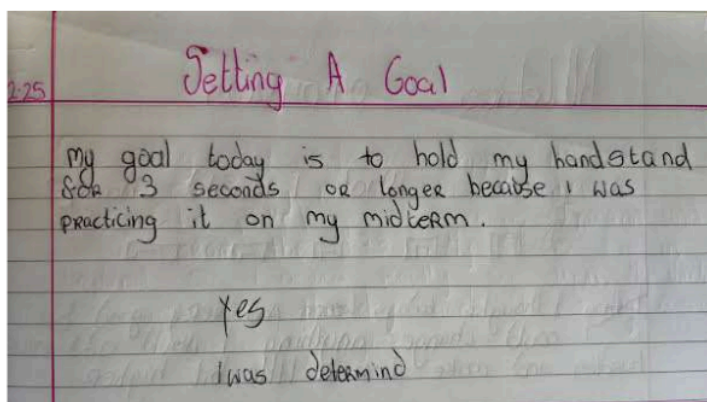 Setting A Goal
2.25
my goal today is to hold my handstand
for 3 seconds or longer because i was
practicing it on my midterm.
yes
i was determind